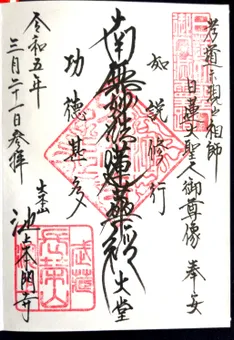 孝道示現之祖師
日蓮大聖人御尊像 奉安
如説修行
南無妙法蓮華経 大堂
功徳甚多
令和五年
三月二十一日参拝
大本山
池上本門寺
武蔵
長栄山